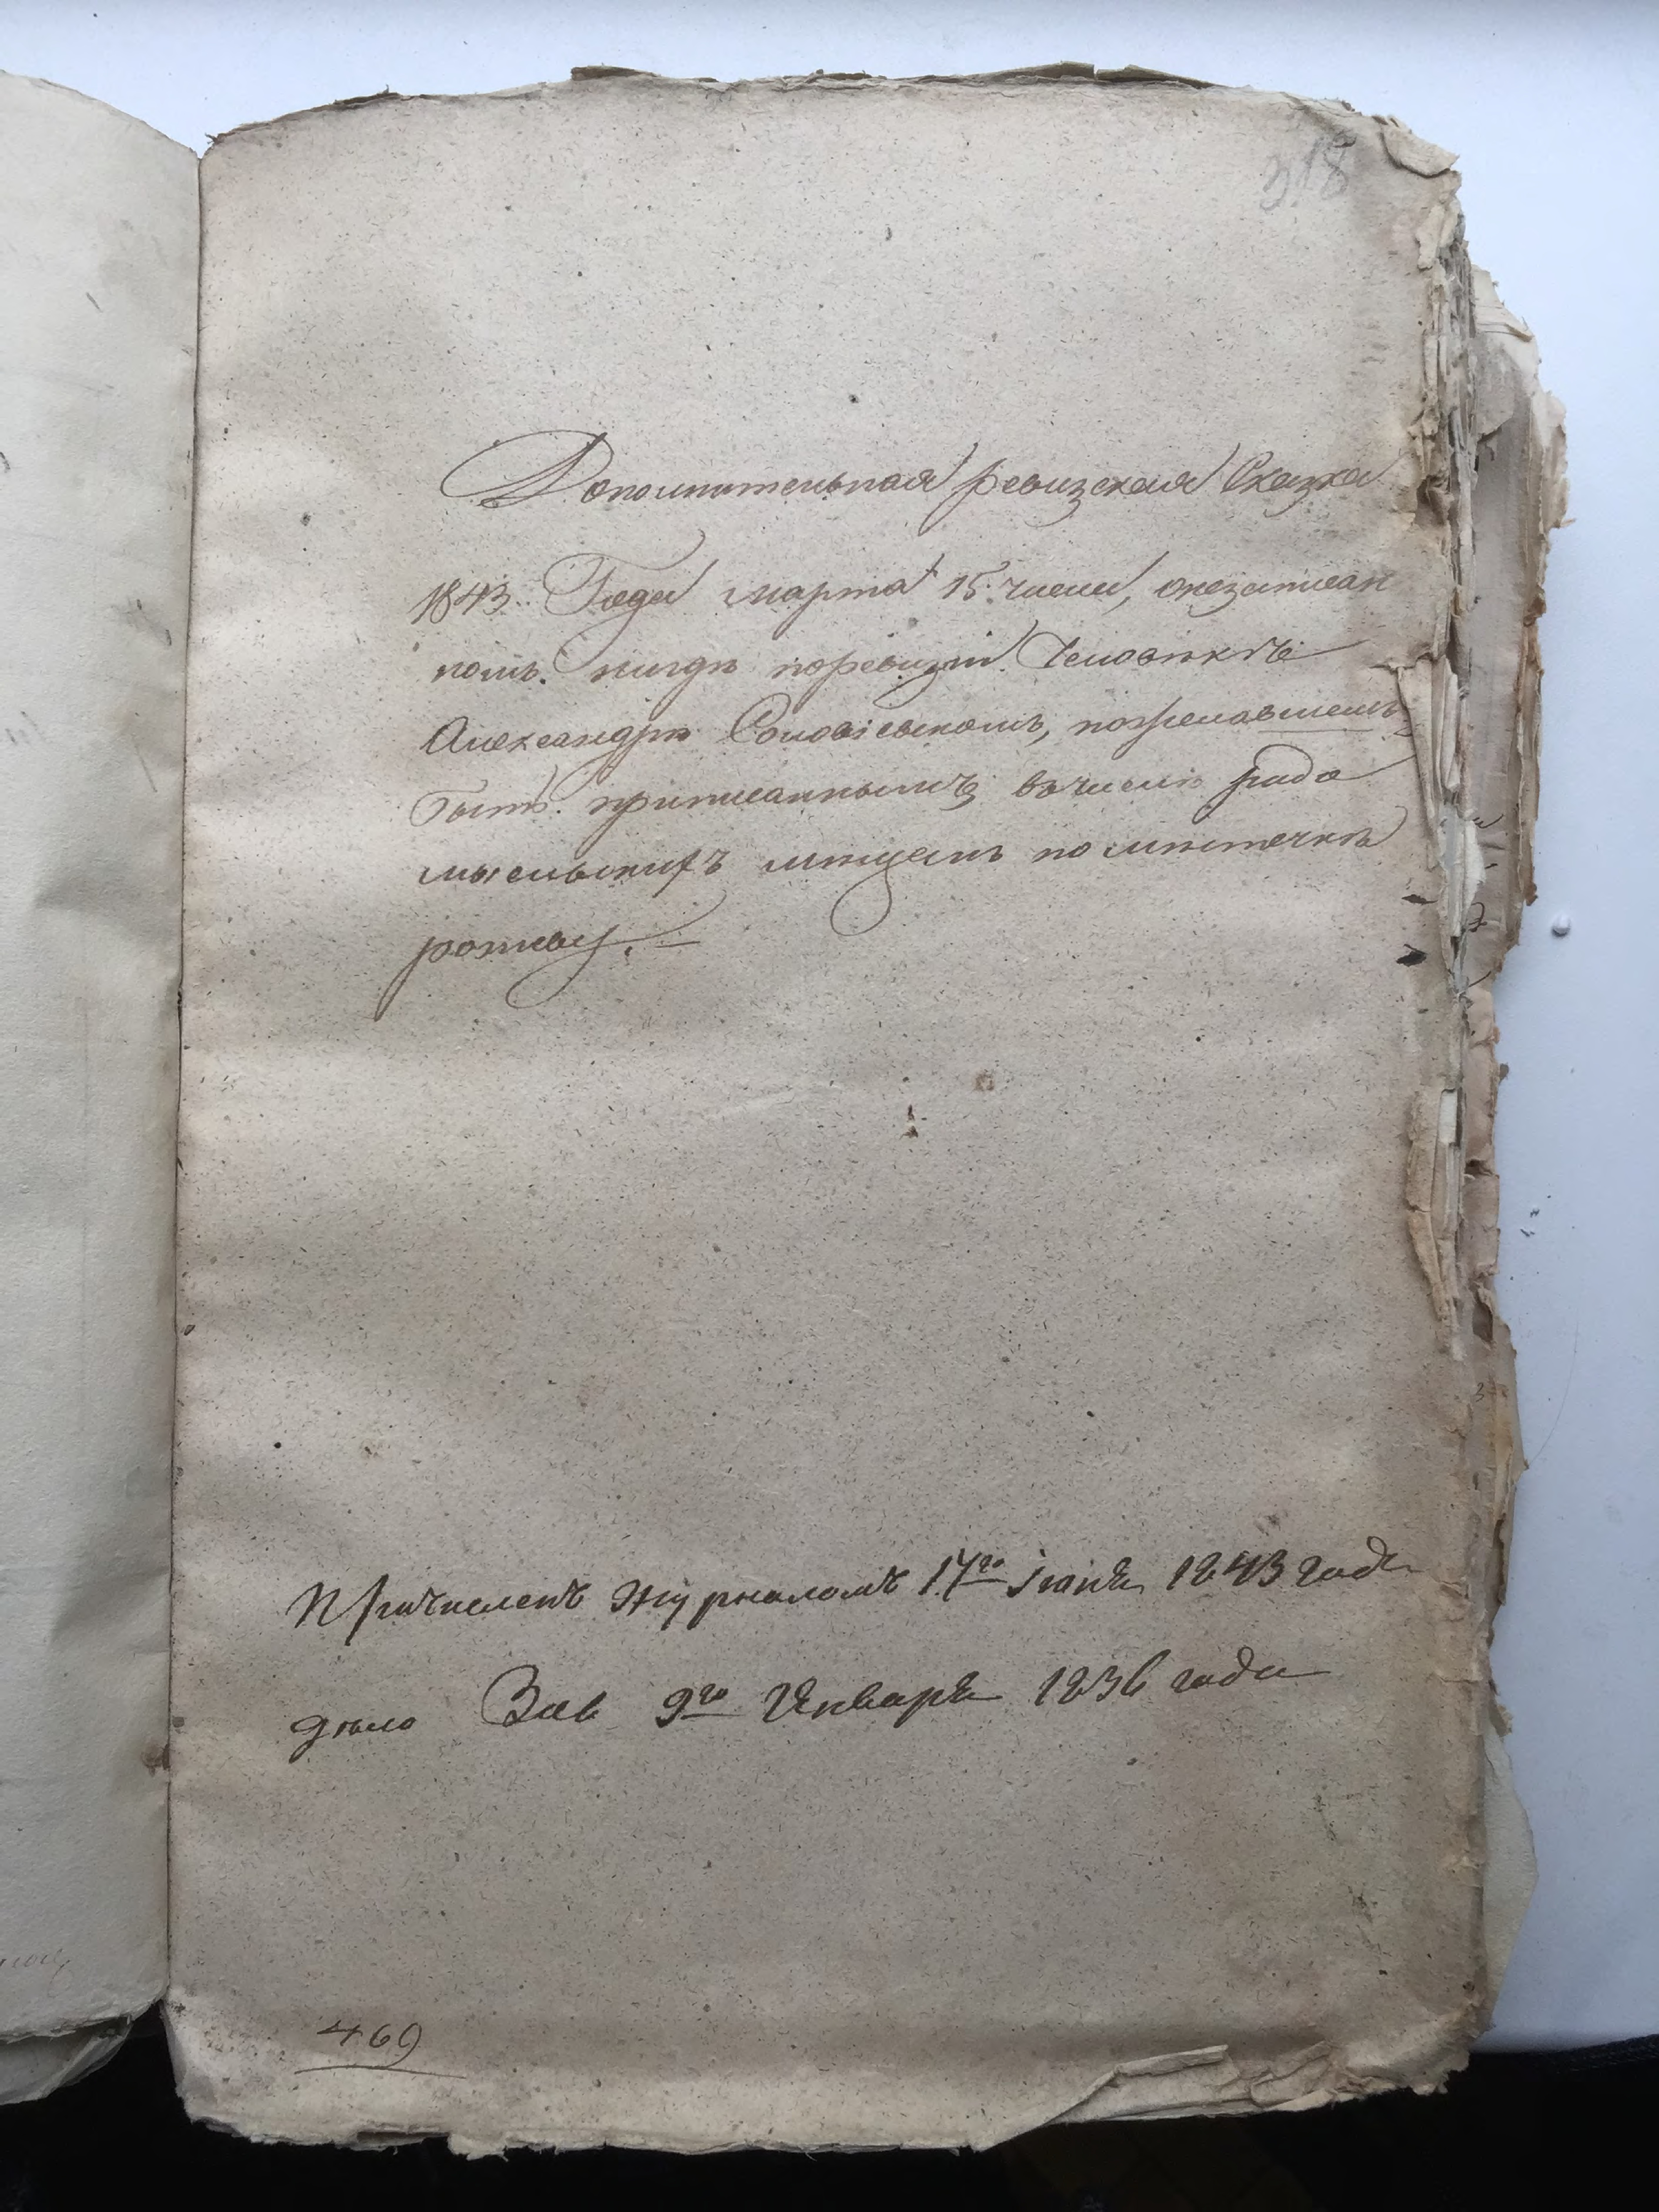 918
Дополнительная ревизская Сказка
1843. Года марта 15. числа, онезаписан
номъ. нигдѣ поревизіи Человѣкѣ
Александрѣ Соловіевскомъ, пожелавшемъ
быть. приписаннымъ вчисло радо
мысльскихъ мѣщанъ по мѣстечкѣ
рожеву. —
Причисленъ журналомъ 17го Іюня 1843 года
дѣло 9го Января 1836 года
469